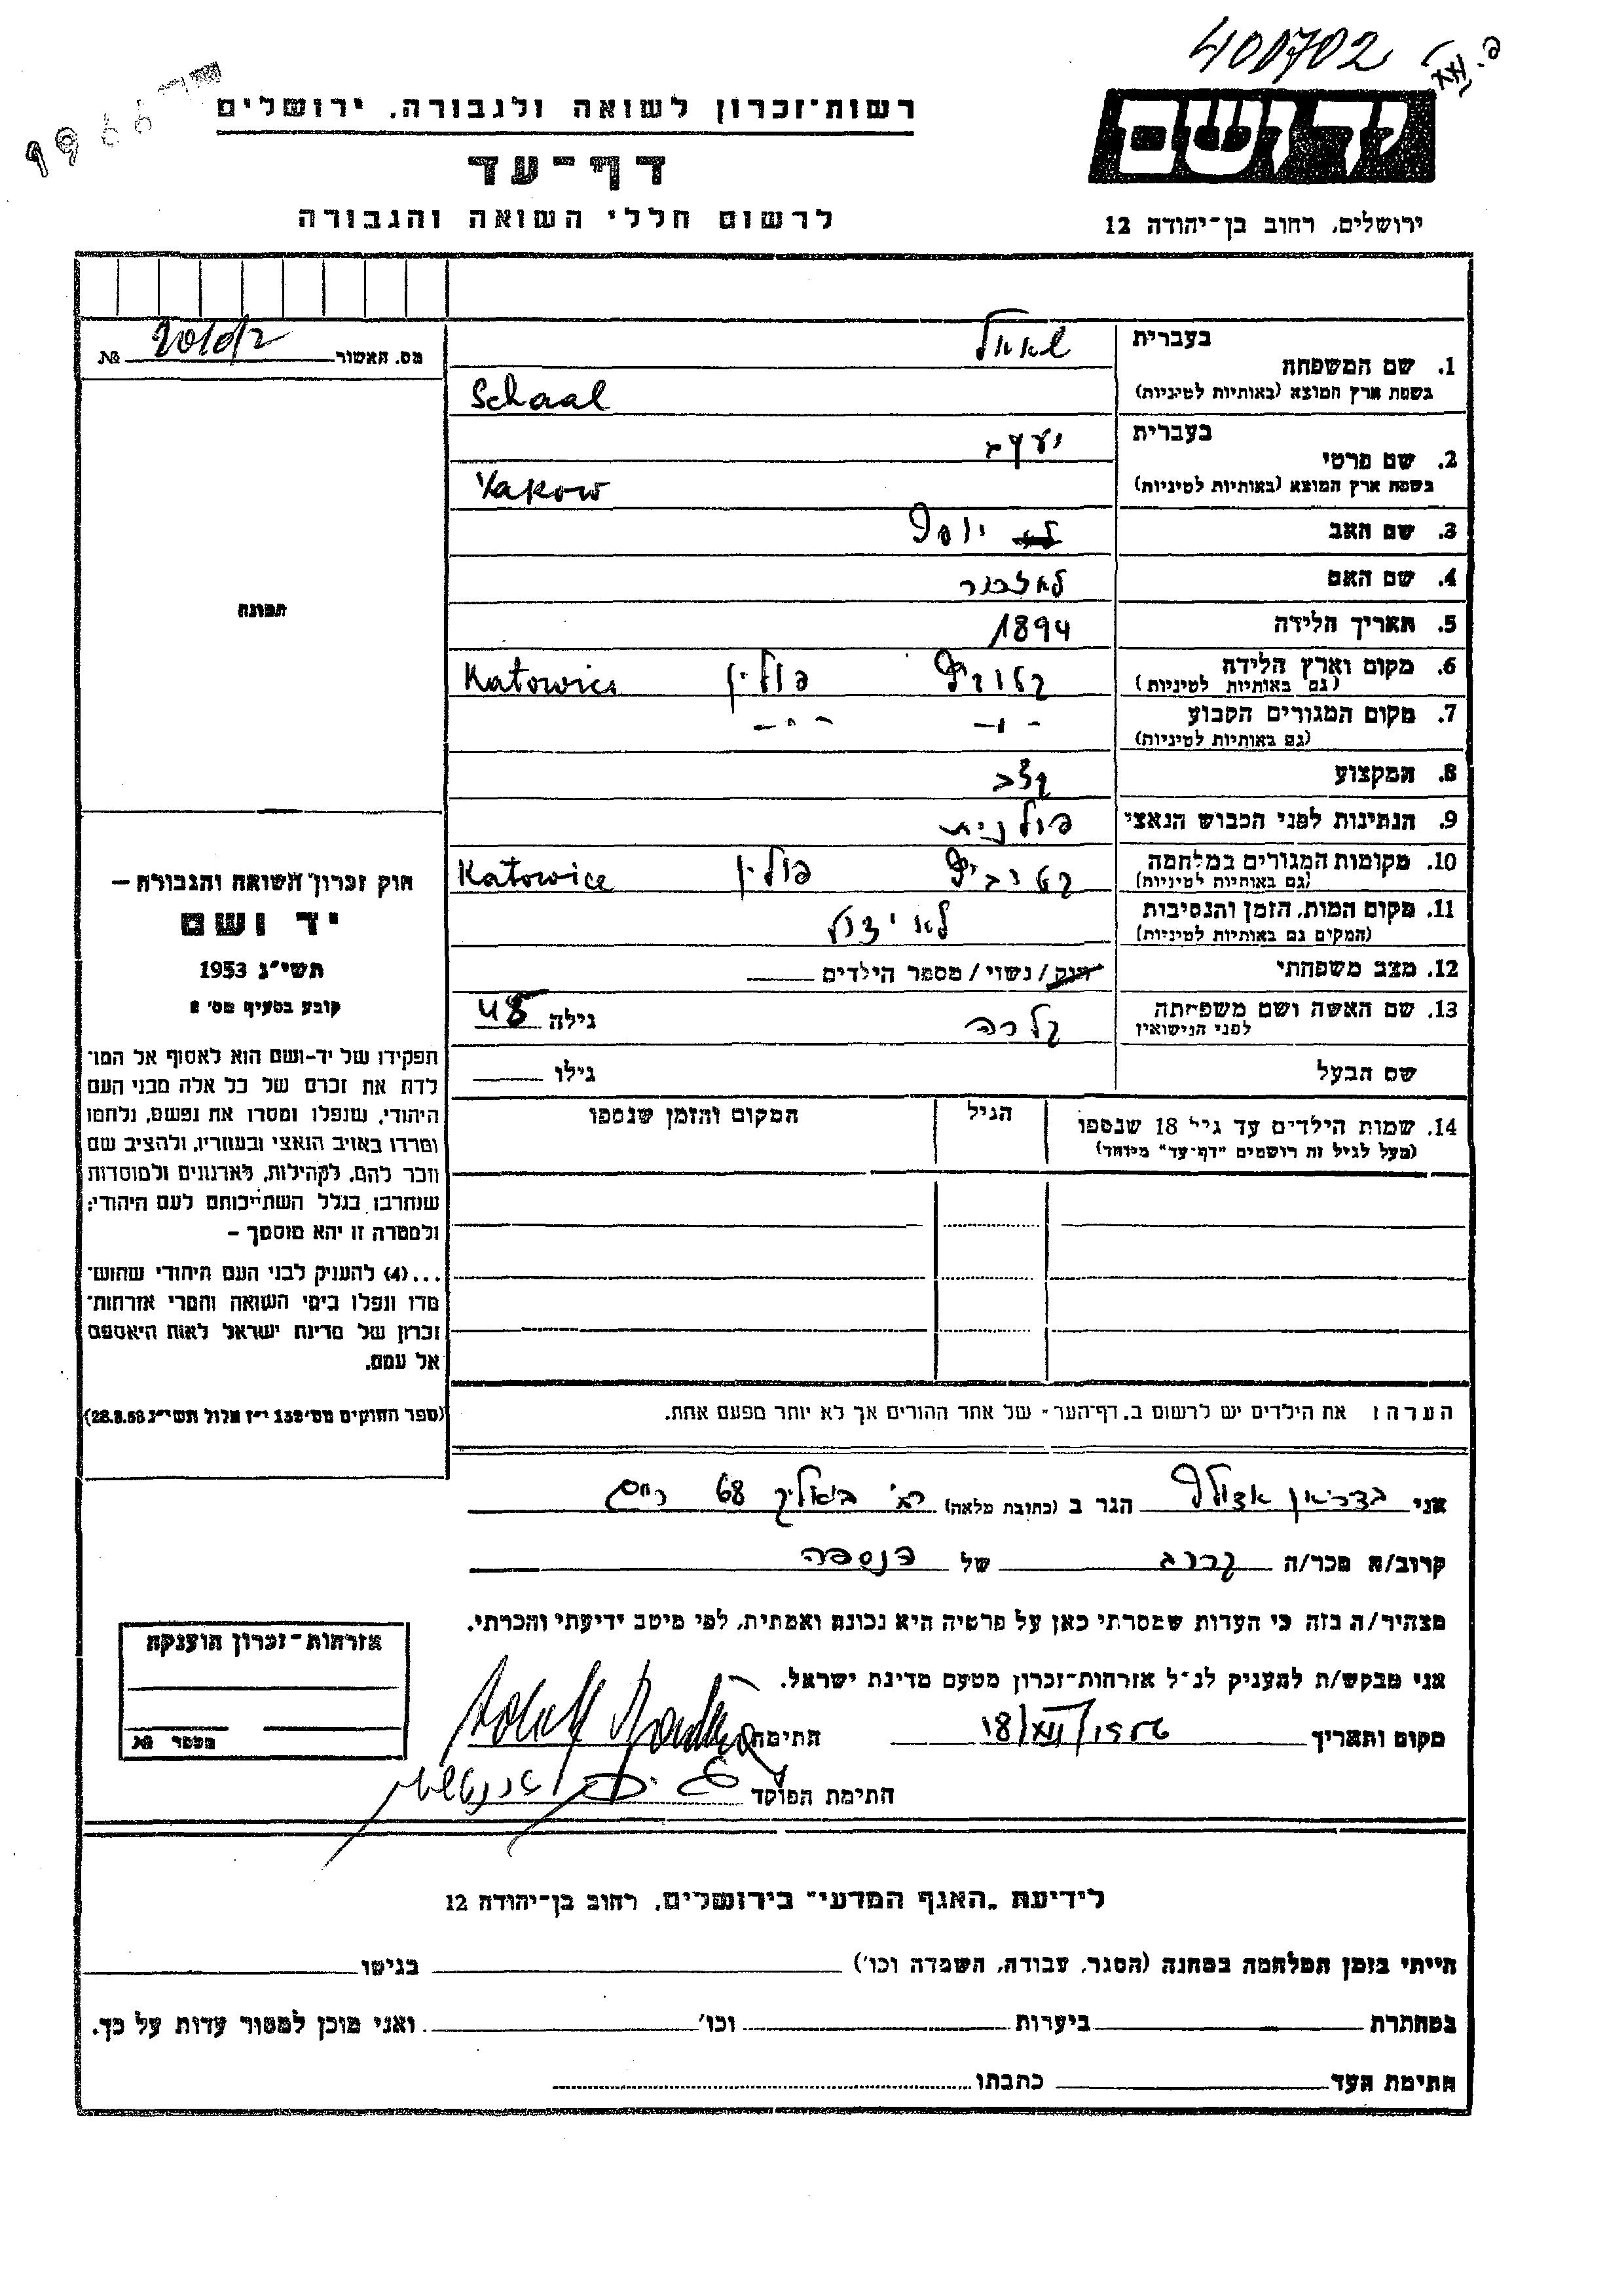 400702
רשות־זכרון לשואה ולגבורה, ירושלים
יד ושם
דף־עד
לרשום חללי השואה והגבורה
ירושלים, רחוב בן־יהודה 12
מס. האשור №
1. שם המשפחה
בעברית שאאל
בשפת ארץ המוצא (באותיות לטיניות) Schaal
2. שם פרטי
בעברית יעקב
בשפת ארץ המוצא (באותיות לטיניות) Yakow
3. שם האב יוסף
4. שם האם
5. תאריך הלידה 1894
6. מקום וארץ הלידה קטוביץ פולין Katowice
(גם באותיות לטיניות)
7. מקום המגורים הקבוע -"- -"-
(גם באותיות לטיניות)
8. המקצוע קצב
9. הנתינות לפני הכבוש הנאצי פולנית
10. מקומות המגורים במלחמה קטוביץ פולין Katowice
(גם באותיות לטיניות)
11. מקום המות, הזמן והנסיבות לא ידוע
(המקום גם באותיות לטיניות)
12. מצב משפחתי רווק / נשוי / מספר הילדים
13. שם האשה ושם משפחתה קלרה גילה 48
לפני הנישואין
שם הבעל גילו
14. שמות הילדים עד גיל 18 שנספו הגיל המקום והזמן שנספו
(מעל לגיל זה רושמים "דף־עד" מיוחד)
הערה: את הילדים יש לרשום ב"דף־העד" של אחד ההורים אך לא יותר מפעם אחת.
תמונה
חוק זכרון השואה והגבורה —
יד ושם
תשי"ג 1953
קובע בסעיף מס' 2
תפקידו של יד־ושם הוא לאסוף אל המו־
לדת את זכרם של כל אלה מבני העם
היהודי, שנפלו ומסרו את נפשם, נלחמו
ומרדו באויב הנאצי ובעוזריו, ולהציב שם
וזכר להם, לקהילות, לארגונים ולמוסדות
שנחרבו בגלל השתייכותם לעם היהודי;
ולמטרה זו יהא מוסמך —
...(4) להעניק לבני העם היהודי שהוש־
מדו ונפלו בימי השואה והמרי אזרחות־
זכרון של מדינת ישראל לאות היאספם
אל עמם.
(ספר החוקים מס' 132 י"ז אלול תשי"ג 28.8.53)
אני אדולף הגר ב (כתובת מלאה) רח' ביאליק 68
קרוב/ה מכר/ה קרוב של הנספה
מצהיר/ה בזה כי העדות שמסרתי כאן על פרטיה היא נכונה ואמתית, לפי מיטב ידיעתי והכרתי.
אני מבקש/ת להעניק לנ"ל אזרחות־זכרון מטעם מדינת ישראל.
מקום ותאריך 18/XII/1956 חתימה Adolf
חתימת הפוקד
אזרחות־זכרון הוענקה
מספר №
לידיעת "האגף המדעי" בירושלים, רחוב בן־יהודה 12
הייתי בזמן המלחמה במחנה (הסגר, עבודה, השמדה וכו') בגיטו
במחתרת ביערות וכו' ואני מוכן למסור עדות על כך.
חתימת העד כתבתו